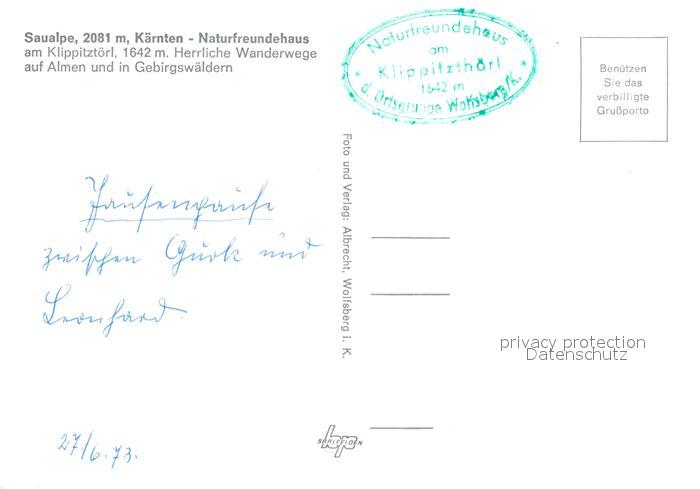 Saualpe, 2081 m, Kärnten - Naturfreundehaus
am Klippitztörl, 1642 m. Herrliche Wanderwege
auf Almen und in Gebirgswäldern
Naturfreundehaus
am
Klippitzthörl
1642 m
d. Ortsgruppe Wolfsberg/K.
Benützen
Sie das
verbilligte
Grußporto
Foto und Verlag: Albrecht, Wolfsberg i. K.
Jausenpause
zwischen Gurk und
Leonhard.
27/6.73.
privacy protection
Datenschutz